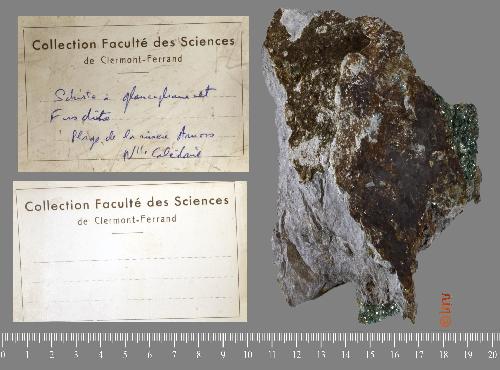 Collection Faculté des Sciences
de Clermont-Ferrand
Schiste à glaucophane et
Plage de la mine
Nlle Calédonie
Collection Faculté des Sciences
de Clermont-Ferrand
0 1 2 3 4 5 6 7 8 9 10 11 12 13 14 15 16 17 18 19 20